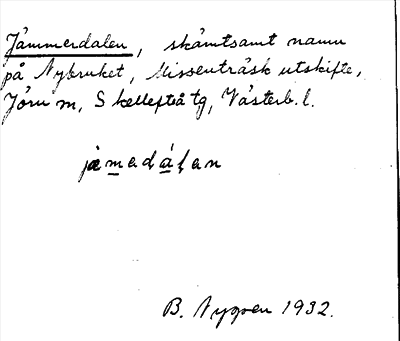 Jämmerdalen, skämtsamt namn
på Nybruket, Missenträsk utskifte,
Jörn m, Skellefteå tg, Västerb. l.
jæmadálan
B. Nygren 1932.